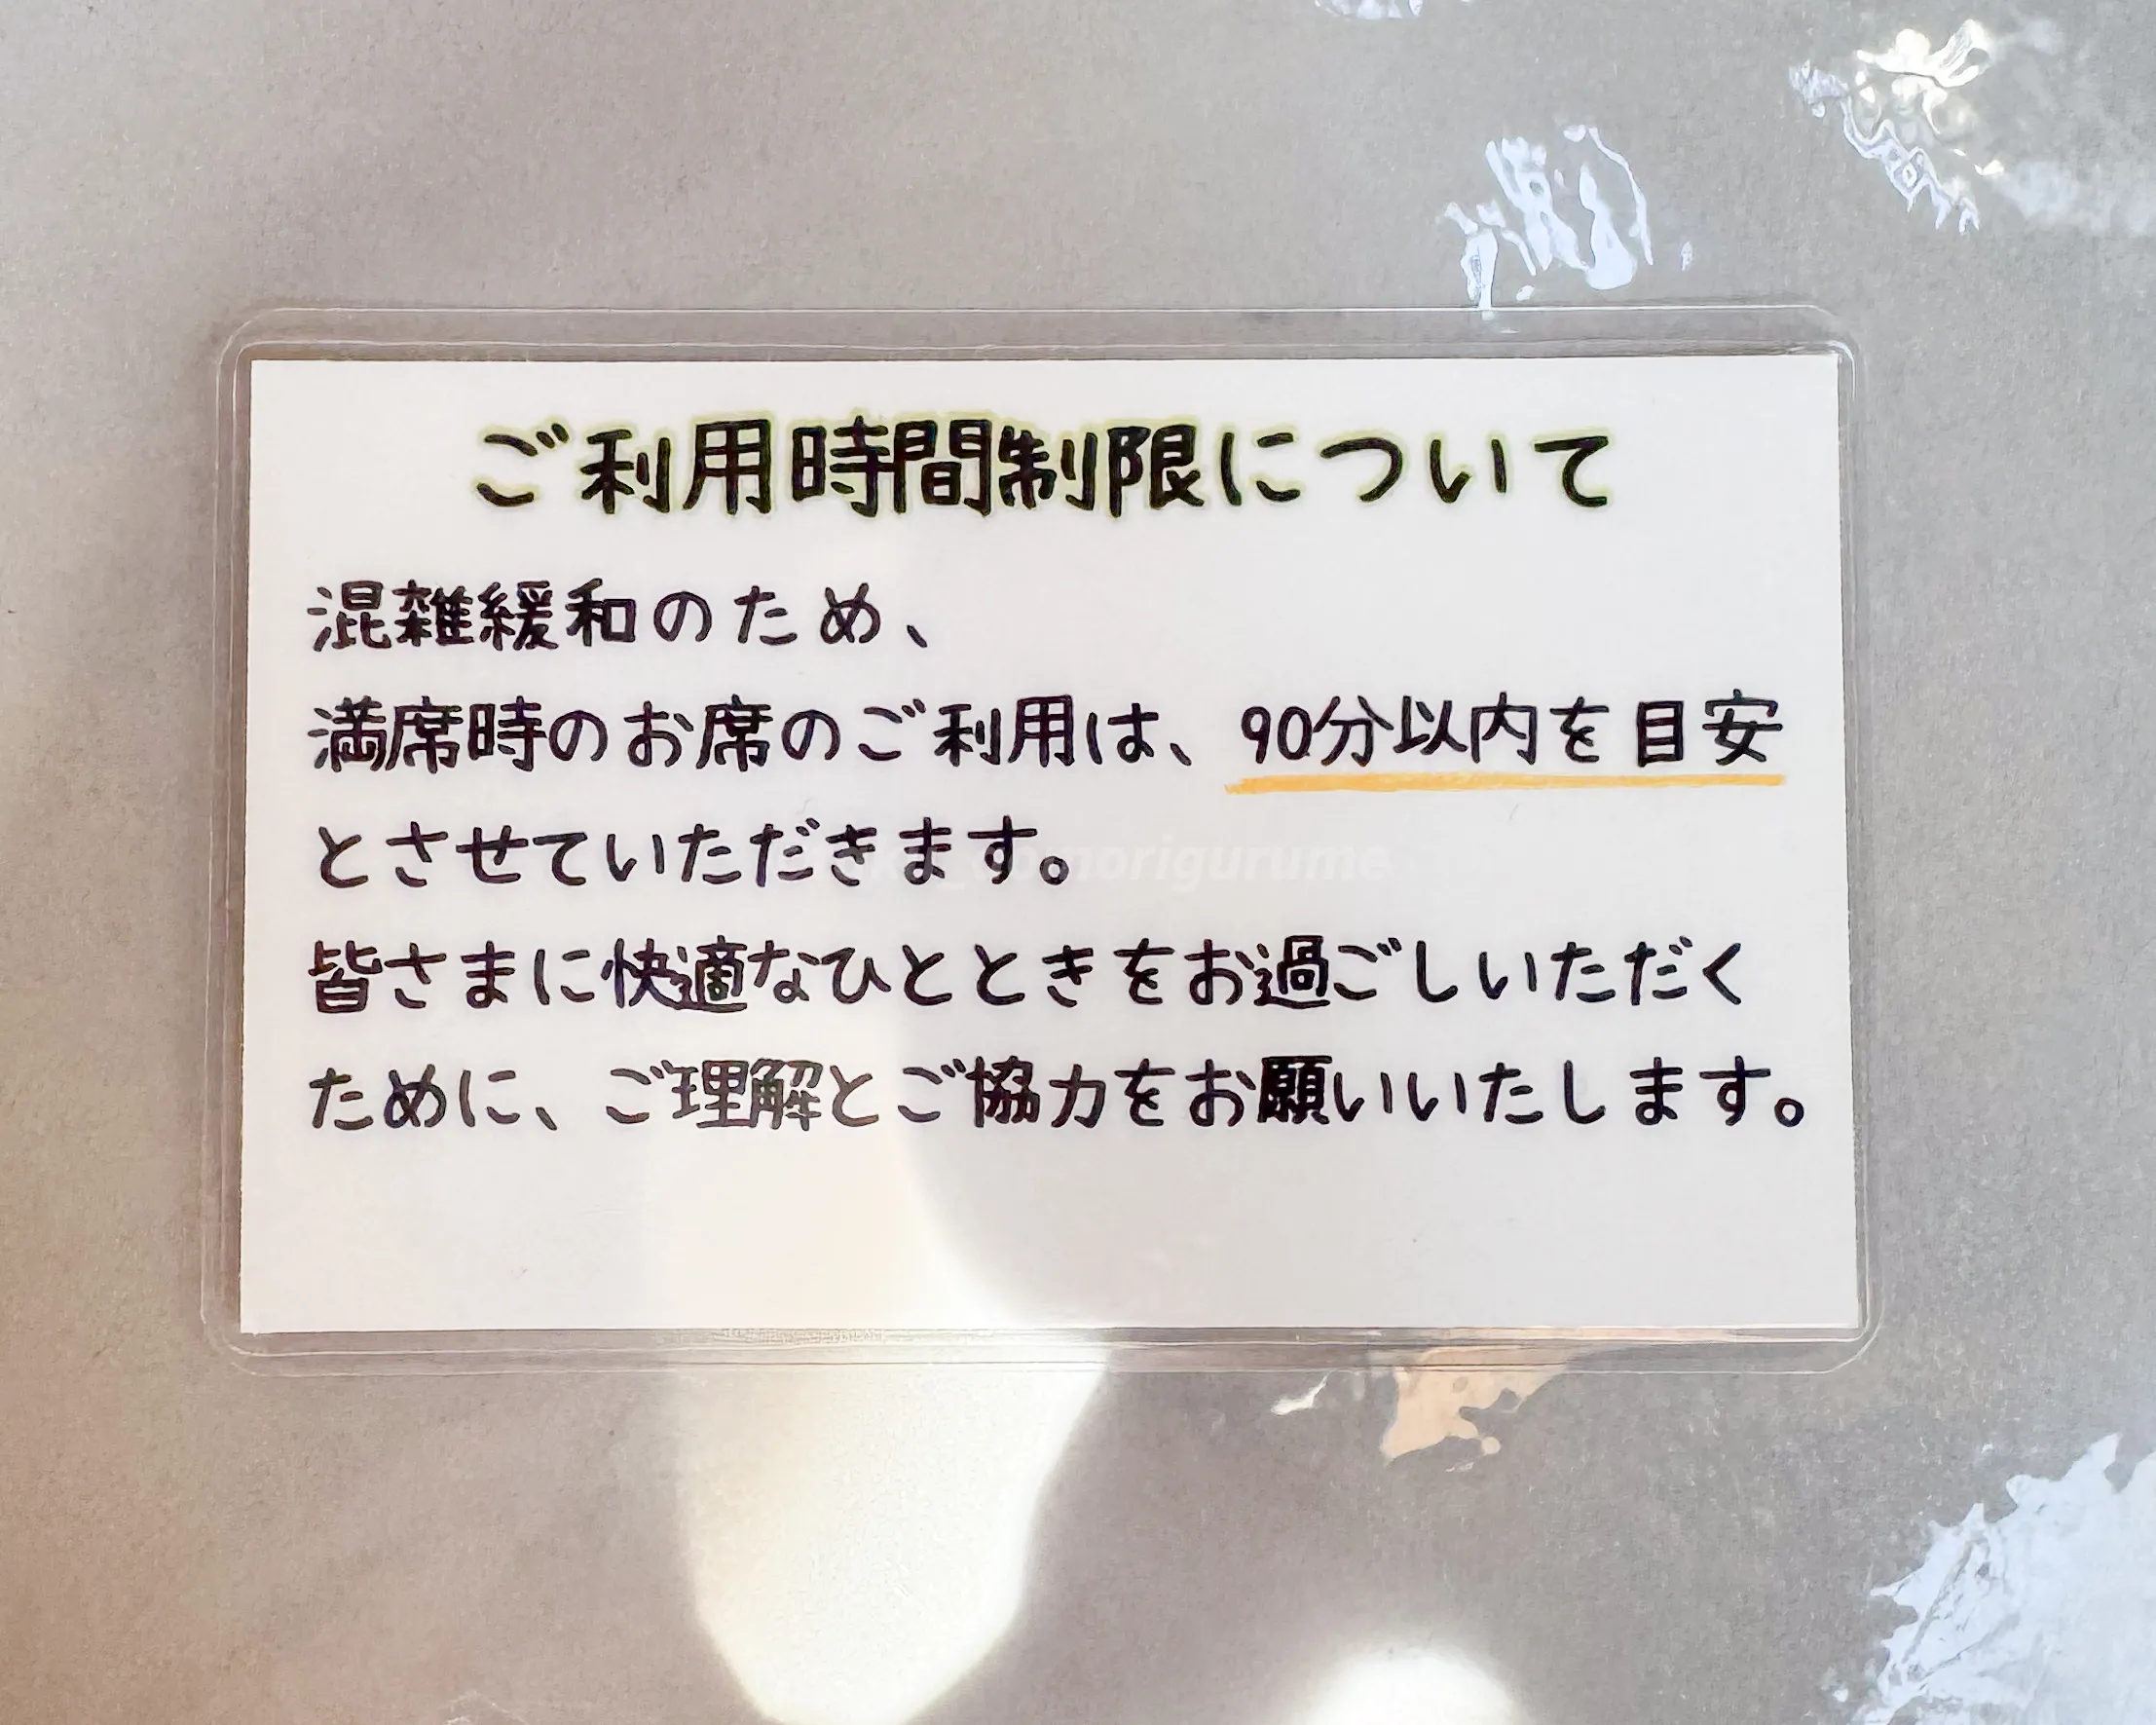 ご利用時間制限について
混雑緩和のため、
満席時のお席のご利用は、90分以内を目安
とさせていただきます。
皆さまに快適なひとときをお過ごしいただく
ために、ご理解とご協力をお願いいたします。